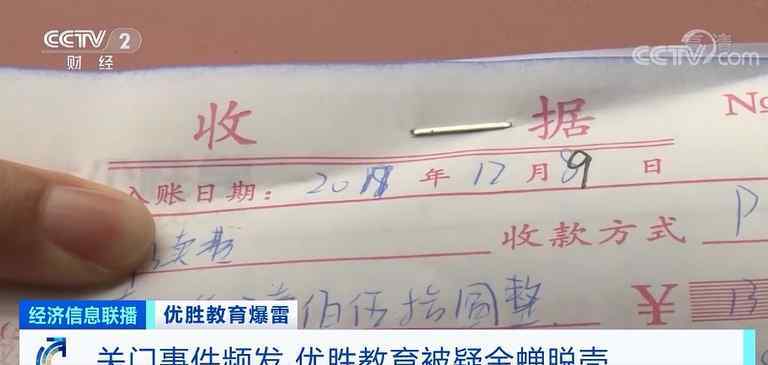 CCTV 2
财经
高清
CCTV.com
收 据
No
入账日期: 年 12 月 9 日
收款方式 P
佰伍拾圆整 ¥ 13
经济信息联播 优胜教育爆雷
关门事件频发 优胜教育被疑金蝉脱壳